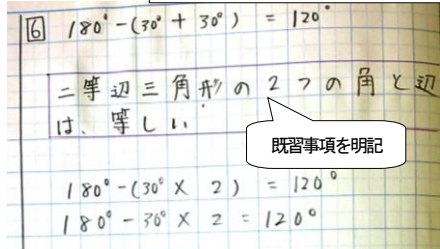 6 180°-(30°+30°) = 120°
二等辺三角形の2つの角と辺
は、等しい。
既習事項を明記
180°-(30°× 2) = 120°
180°-30°× 2 = 120°